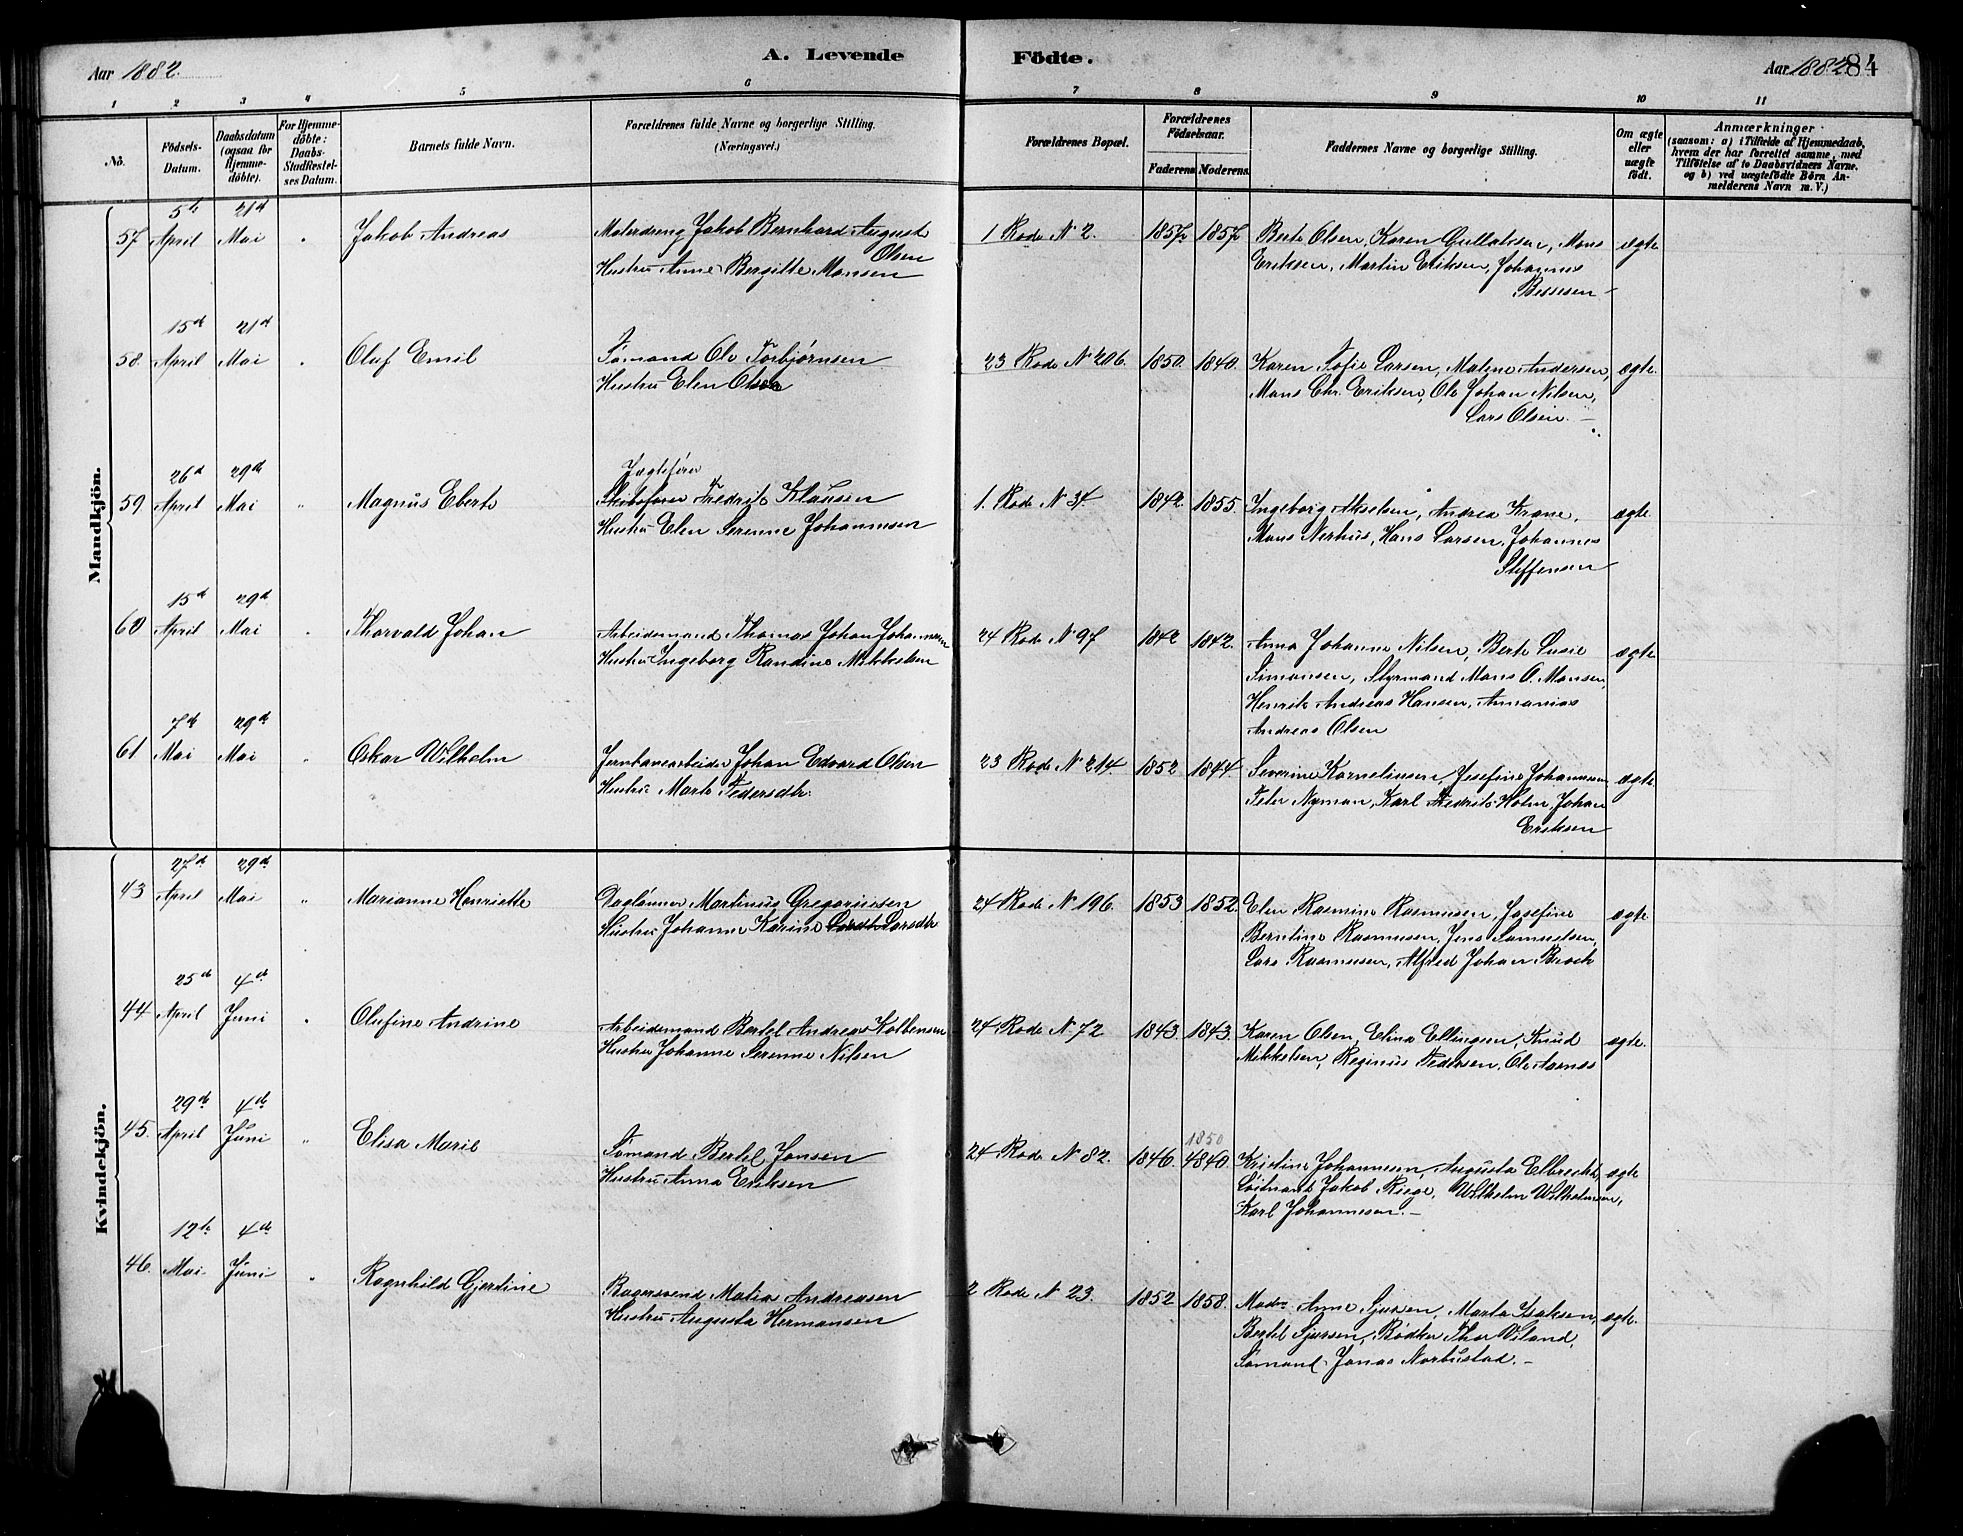 Aar 1882.
A. Levende
Födte.
Aar 1882.
84
1 2 3 4 5 6 7 8 9 10 11
No.
Födsels-
Datum.
Daabsdatum
(ogsaa for
Hjemme-
döbte).
For Hjemme-
döbte:
Daabs-
Stadfæstel-
ses Datum.
Barnets fulde Navn.
Forældrenes fulde Navne og borgerlige Stilling.
(Næringsvei.)
Forældrenes Bopæl.
Forældrenes
Födselsaar.
Faderens Moderens
Faddernes Navne og borgerlige Stilling.
Om ægte
eller
uægte
födt.
Anmærkninger
(saasom: a) i Tilfælde af Hjemmedaab,
hvem der har forrettet samme, med
Tilföielse af to Daabsvidners Navne,
og b) ved uægtefödte Börn An-
melderens Navn m. V.)
Mandkjön.
57 5te April 21d Mai Jakob Andreas
Malerdreng Jakob Bernhard August
Olsen
Hustru Anne Bergitte Monsen
1 Rode N 2. 1857 1857
Berte Olsen, Karen Gullaksen, Mons
Eriksen, Martin Eriksen, Johannes
Bessesen
ægte
58. 15d April 21d Mai Oluf Emil
Sømand Ole Torbjørnsen
Hustru Elen Olsen
23 Rode N 206. 1850. 1840.
Karen Sofie Larsen, Maline Andersen,
Mons Chr. Eriksen, Ole Johan Nilsen,
Lars Olsen.
ægte.
59. 26d April 29d Mai Magnus Ebert
Jægtefører
Skibsfører Fredrik Klausen
Hustru Elen Serenne Johannesen
1. Rode N 34. 1842. 1855.
Ingeborg Akselsen, Andrea Krane,
Mons Nerhus, Hans Larsen, Johannes
Steffensen
ægte
60 15d April 29d Mai Thorvald Johan
Arbeidsmand Thomas Johan Johannesen
Hustru Ingeborg Randine Mikkelsen
24 Rode N 97 1842 1842.
Anna Johanne Nilsen, Berte Lusie
Simonsen, Styrmand Mons O. Monsen,
Henrik Andreas Hansen, Annanias
Andreas Olsen
ægte
61 7de Mai 29d Mai Oskar Wilhelm
Jernbanearbeider Johan Edvard Olsen
Hustru Marte Pedersdtr.
23 Rode N 214. 1852 1844
Severine Kornelinsen, Josefine Johannesen
Peter Nyman, Karl Fredrik Holm, Johan
Eriksen
ægte.
Kvindekjön.
43 27d April 29d Mai Marianne Henriette
Daglønner Martinus Gregoriussen
Hustru Johanne Karine Larsdtr
24 Rode N 196. 1853 1852.
Elen Rasmine Rasmussen, Josefine
Berntine Rasmussen, Jens Samuelsen,
Lars Rasmussen, Alfred Johan Broch
ægte
44 25d April 4de Juni Olufine Andrine
Arbeidsmand Bertel Andreas Kolbensen
Hustru Johanne Serenne Nilsen
24 Rode N 72 1843. 1843.
Karen Olsen, Elina Ellingsen, Knud
Mikkelsen, Reginus Pedersen, Ole Aarnes
ægte.
45. 29de April 4de Juni Elisa Marie
Sømand Bertel Jansen
Hustru Anna Eriksen
1850
24 Rode N 82. 1846. 1840.
Kristine Johannesen, Augusta Elbrecht,
Løitnant Jakob Riege, Wilhelm Wilhelmsen,
Karl Johannesen.
ægte
46. 12te Mai 4de Juni Ragnhild Gjertine
Bagersvend Matias Andreasen
Hustru Augusta Hermansen
2 Rode N 23. 1852 1858.
Anne Sjursen, Marta Isaksen,
Bertel Sjursen, Bødker Thor Viland,
Sømand Jonas Norbustad.
ægte.